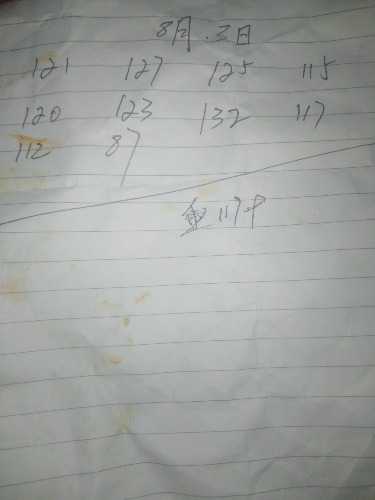 8月.3日
121 127 125 115
120 123 132 117
112 87
重 1179